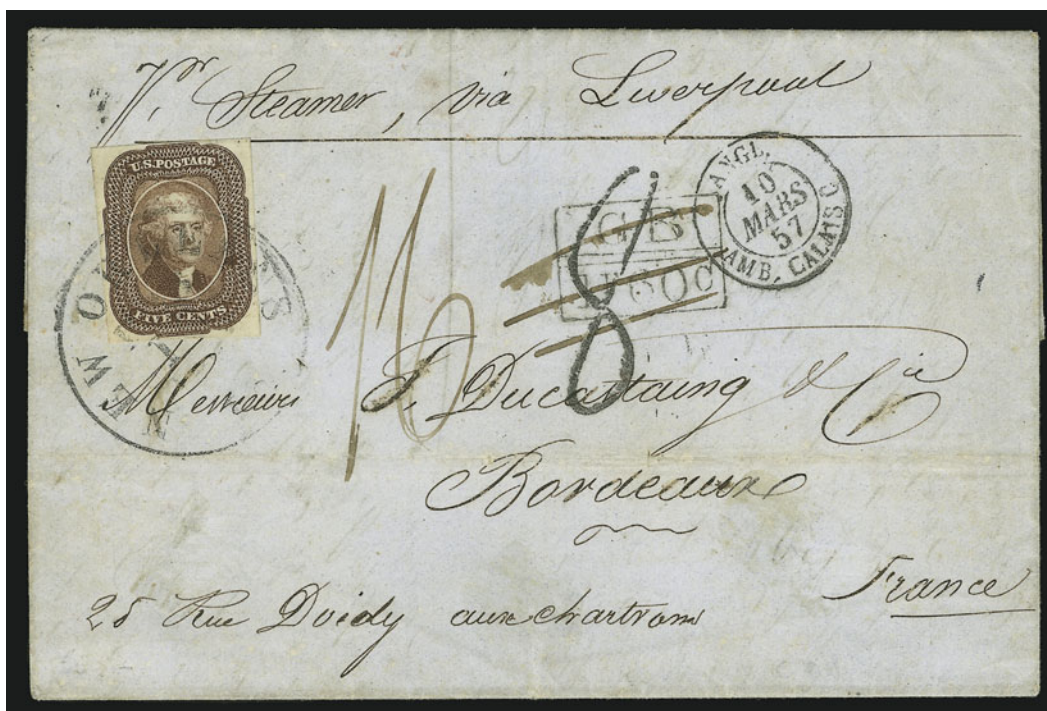 Pr Steamer, via Liverpool
U.S. POSTAGE
FIVE CENTS
NEW ORLEANS
16
8
GB
1F60C
ANGL.
10
MARS
57
AMB. CALAIS C
Messieurs F. Ducastaing & Cie
Bordeaux
France
25 Rue Doidy aux chartrons